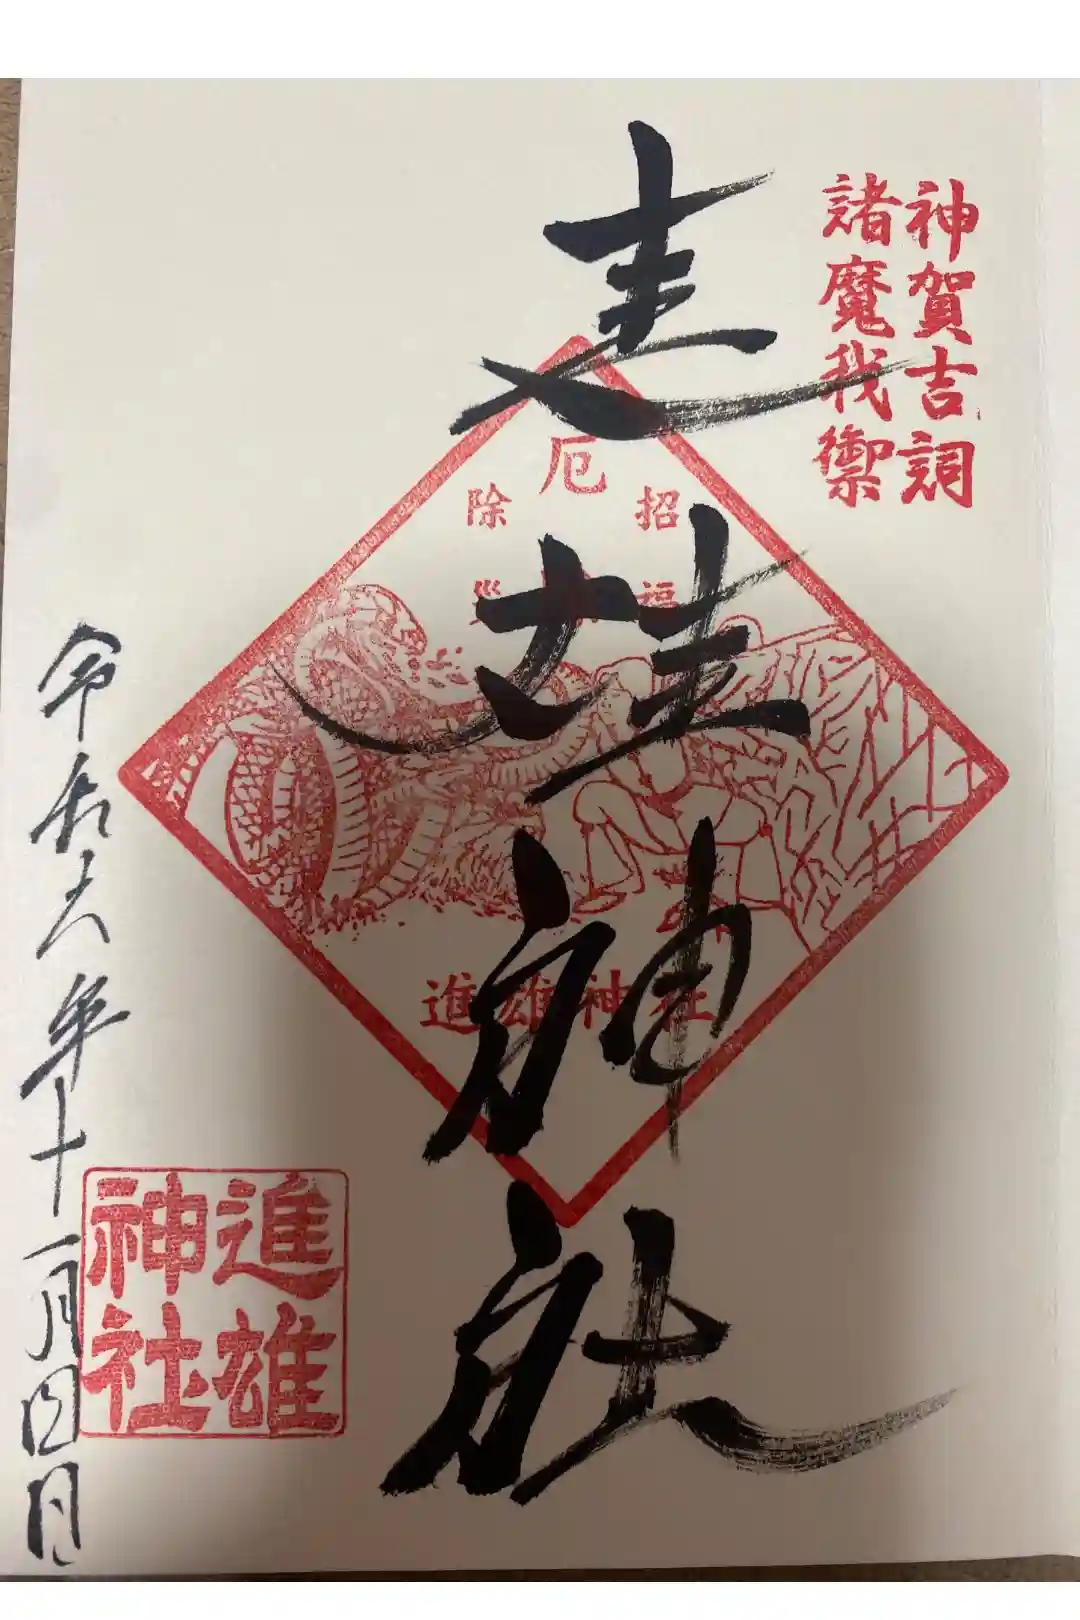 神賀吉詞
諸魔我禦
進雄神社
厄
招福
除災
進雄神社
進雄
神社
令和六年十一月四日